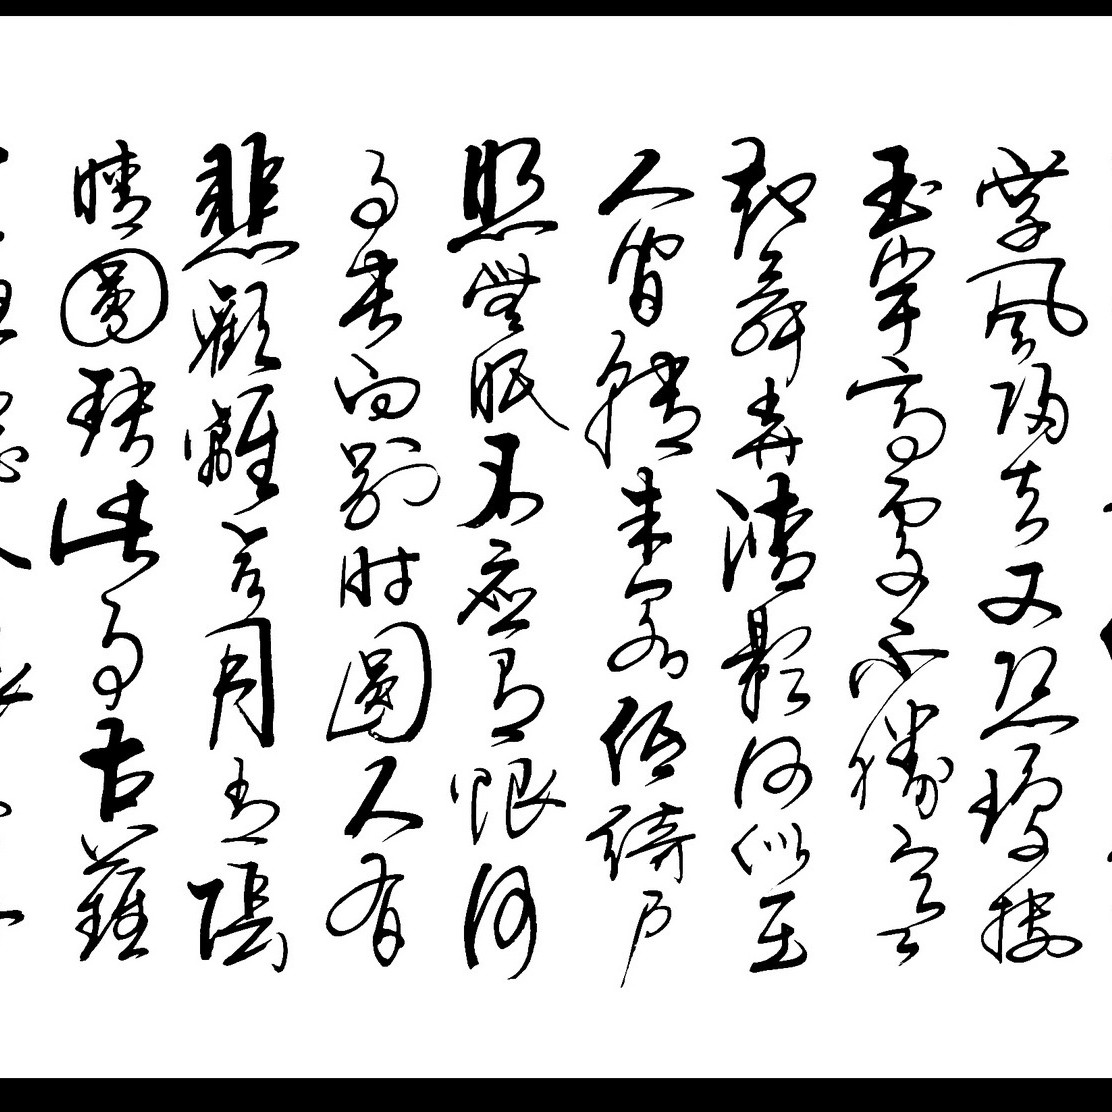 乘風歸去又恐瓊樓
玉宇高處不勝寒
起舞弄清影何似在
人間轉朱閣低綺戶
照無眠不應有恨何
事長向別時圓人有
悲歡離合月有陰
晴圓缺此事古難